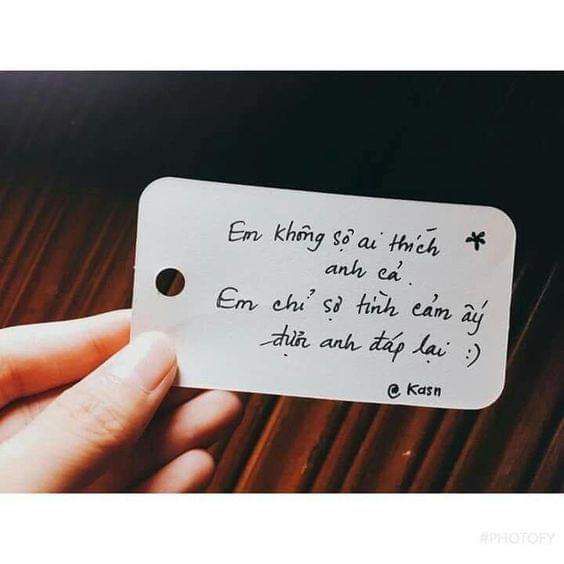 Em không sợ ai thích *
anh cả.
Em chỉ sợ tình cảm ấy
được anh đáp lại :)
@ Kasn
#PHOTOFY